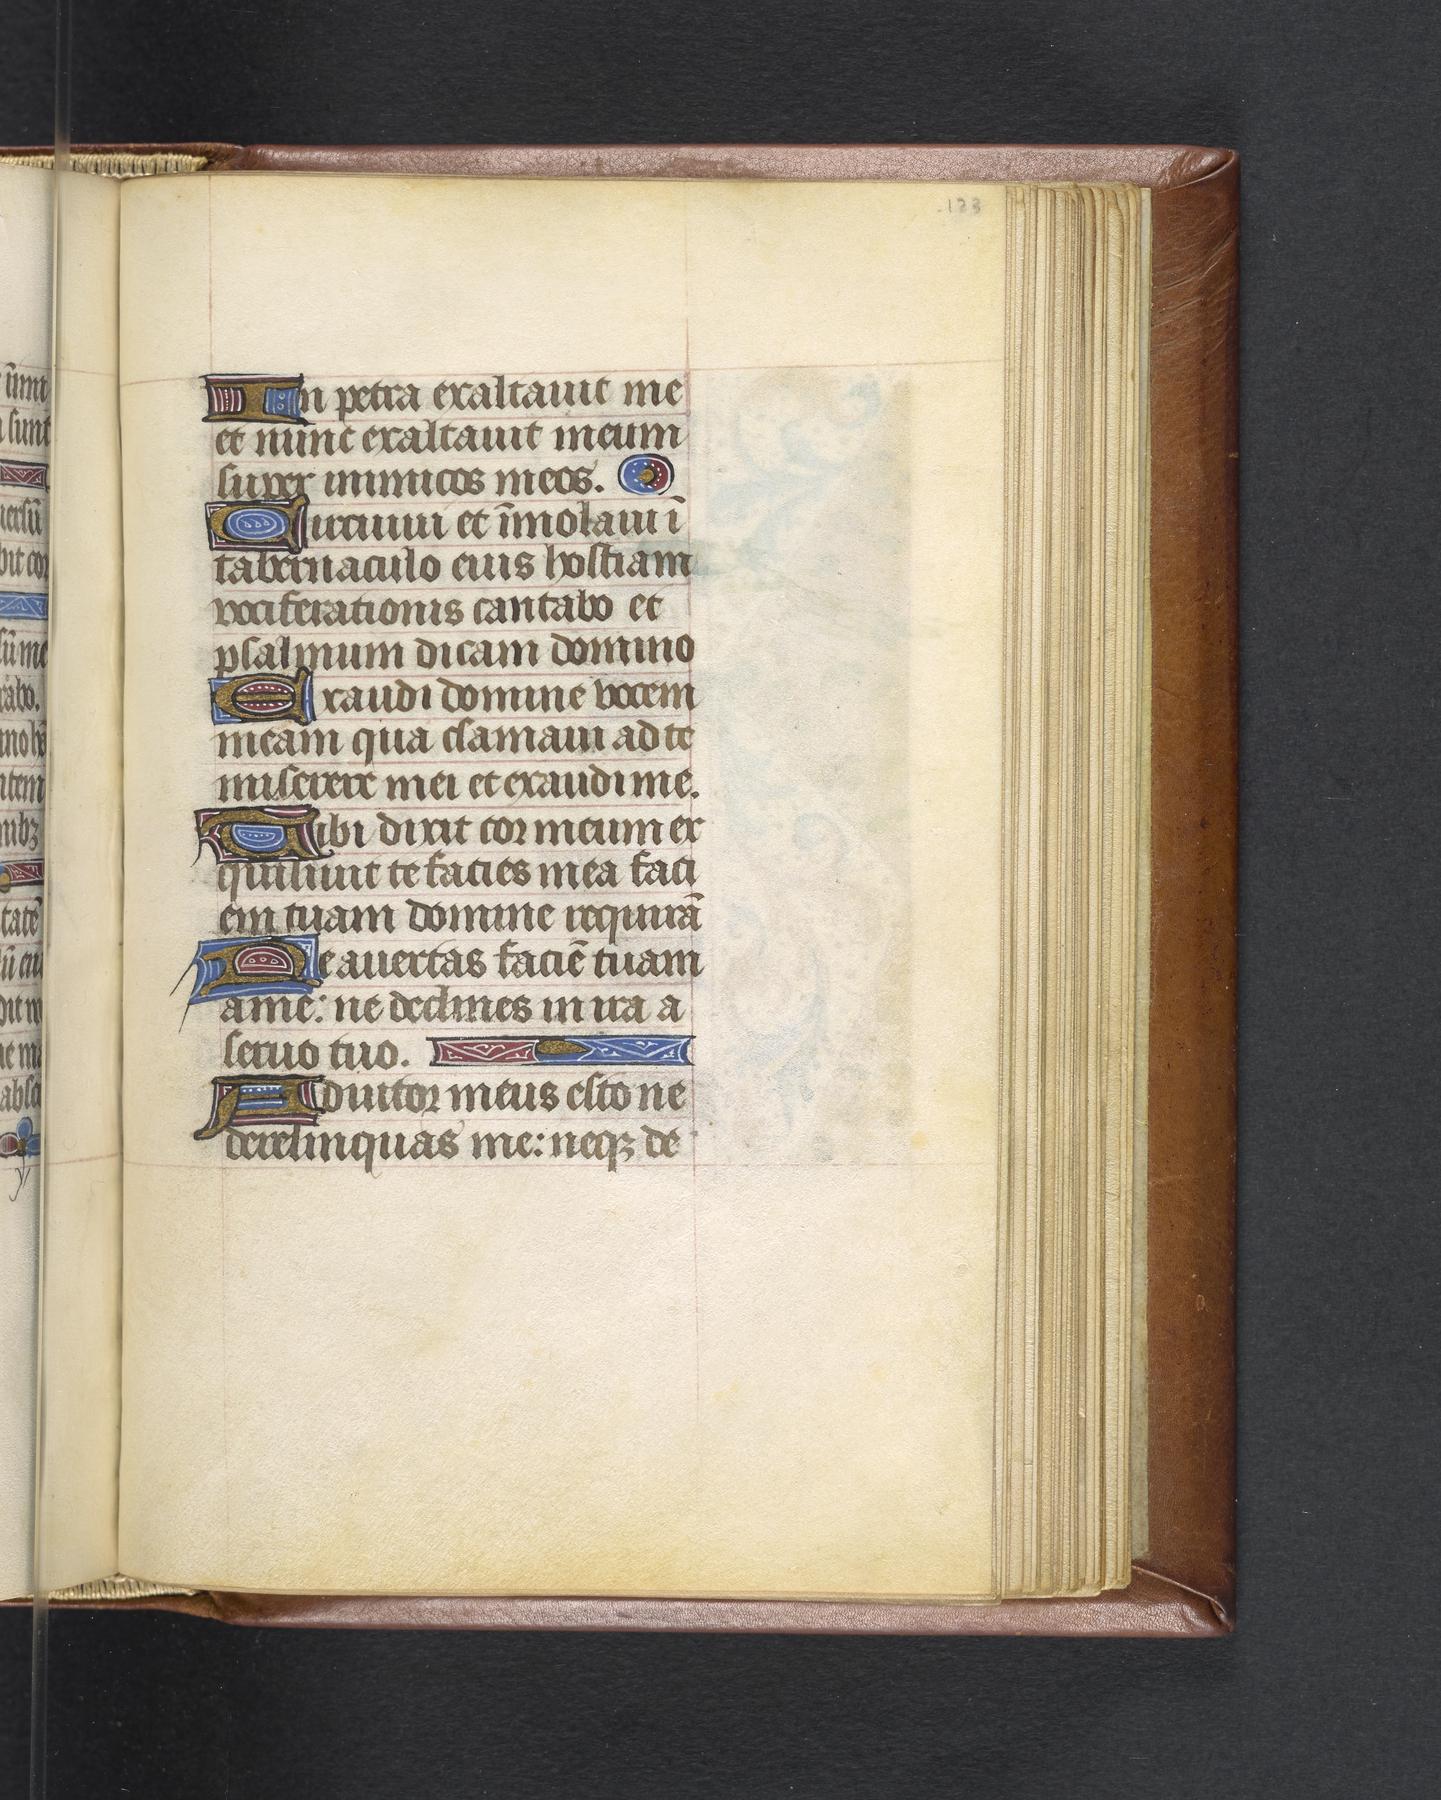 123
In petra exaltauit me
et nunc exaltauit meum
super inimicos meos.
Circuiui et īmolaui ī
tabernaculo eius hostiam
vociferationis cantabo et
psalmum dicam domino
Exaudi domine vocem
meam qua clamaui ad te
miserere mei et exaudi me.
Tibi dixit cor meum ex
quisiuit te facies mea faci
em tuam domine requirā
Ne auertas faciē tuam
a me: ne declines in ira a
seruo tuo.
Adiutor meus esto ne
derelinquas me: neqꝫ de